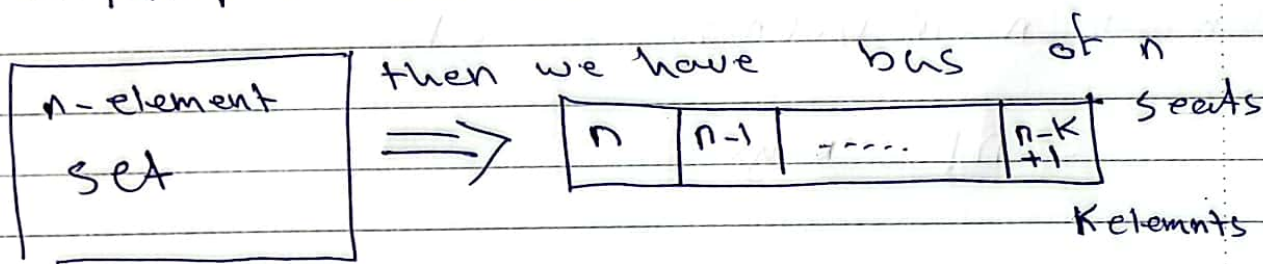 n-element
set
then we have bus of n
seats
⇒
n | n-1 | ..... | n-k
+1
K elemnts